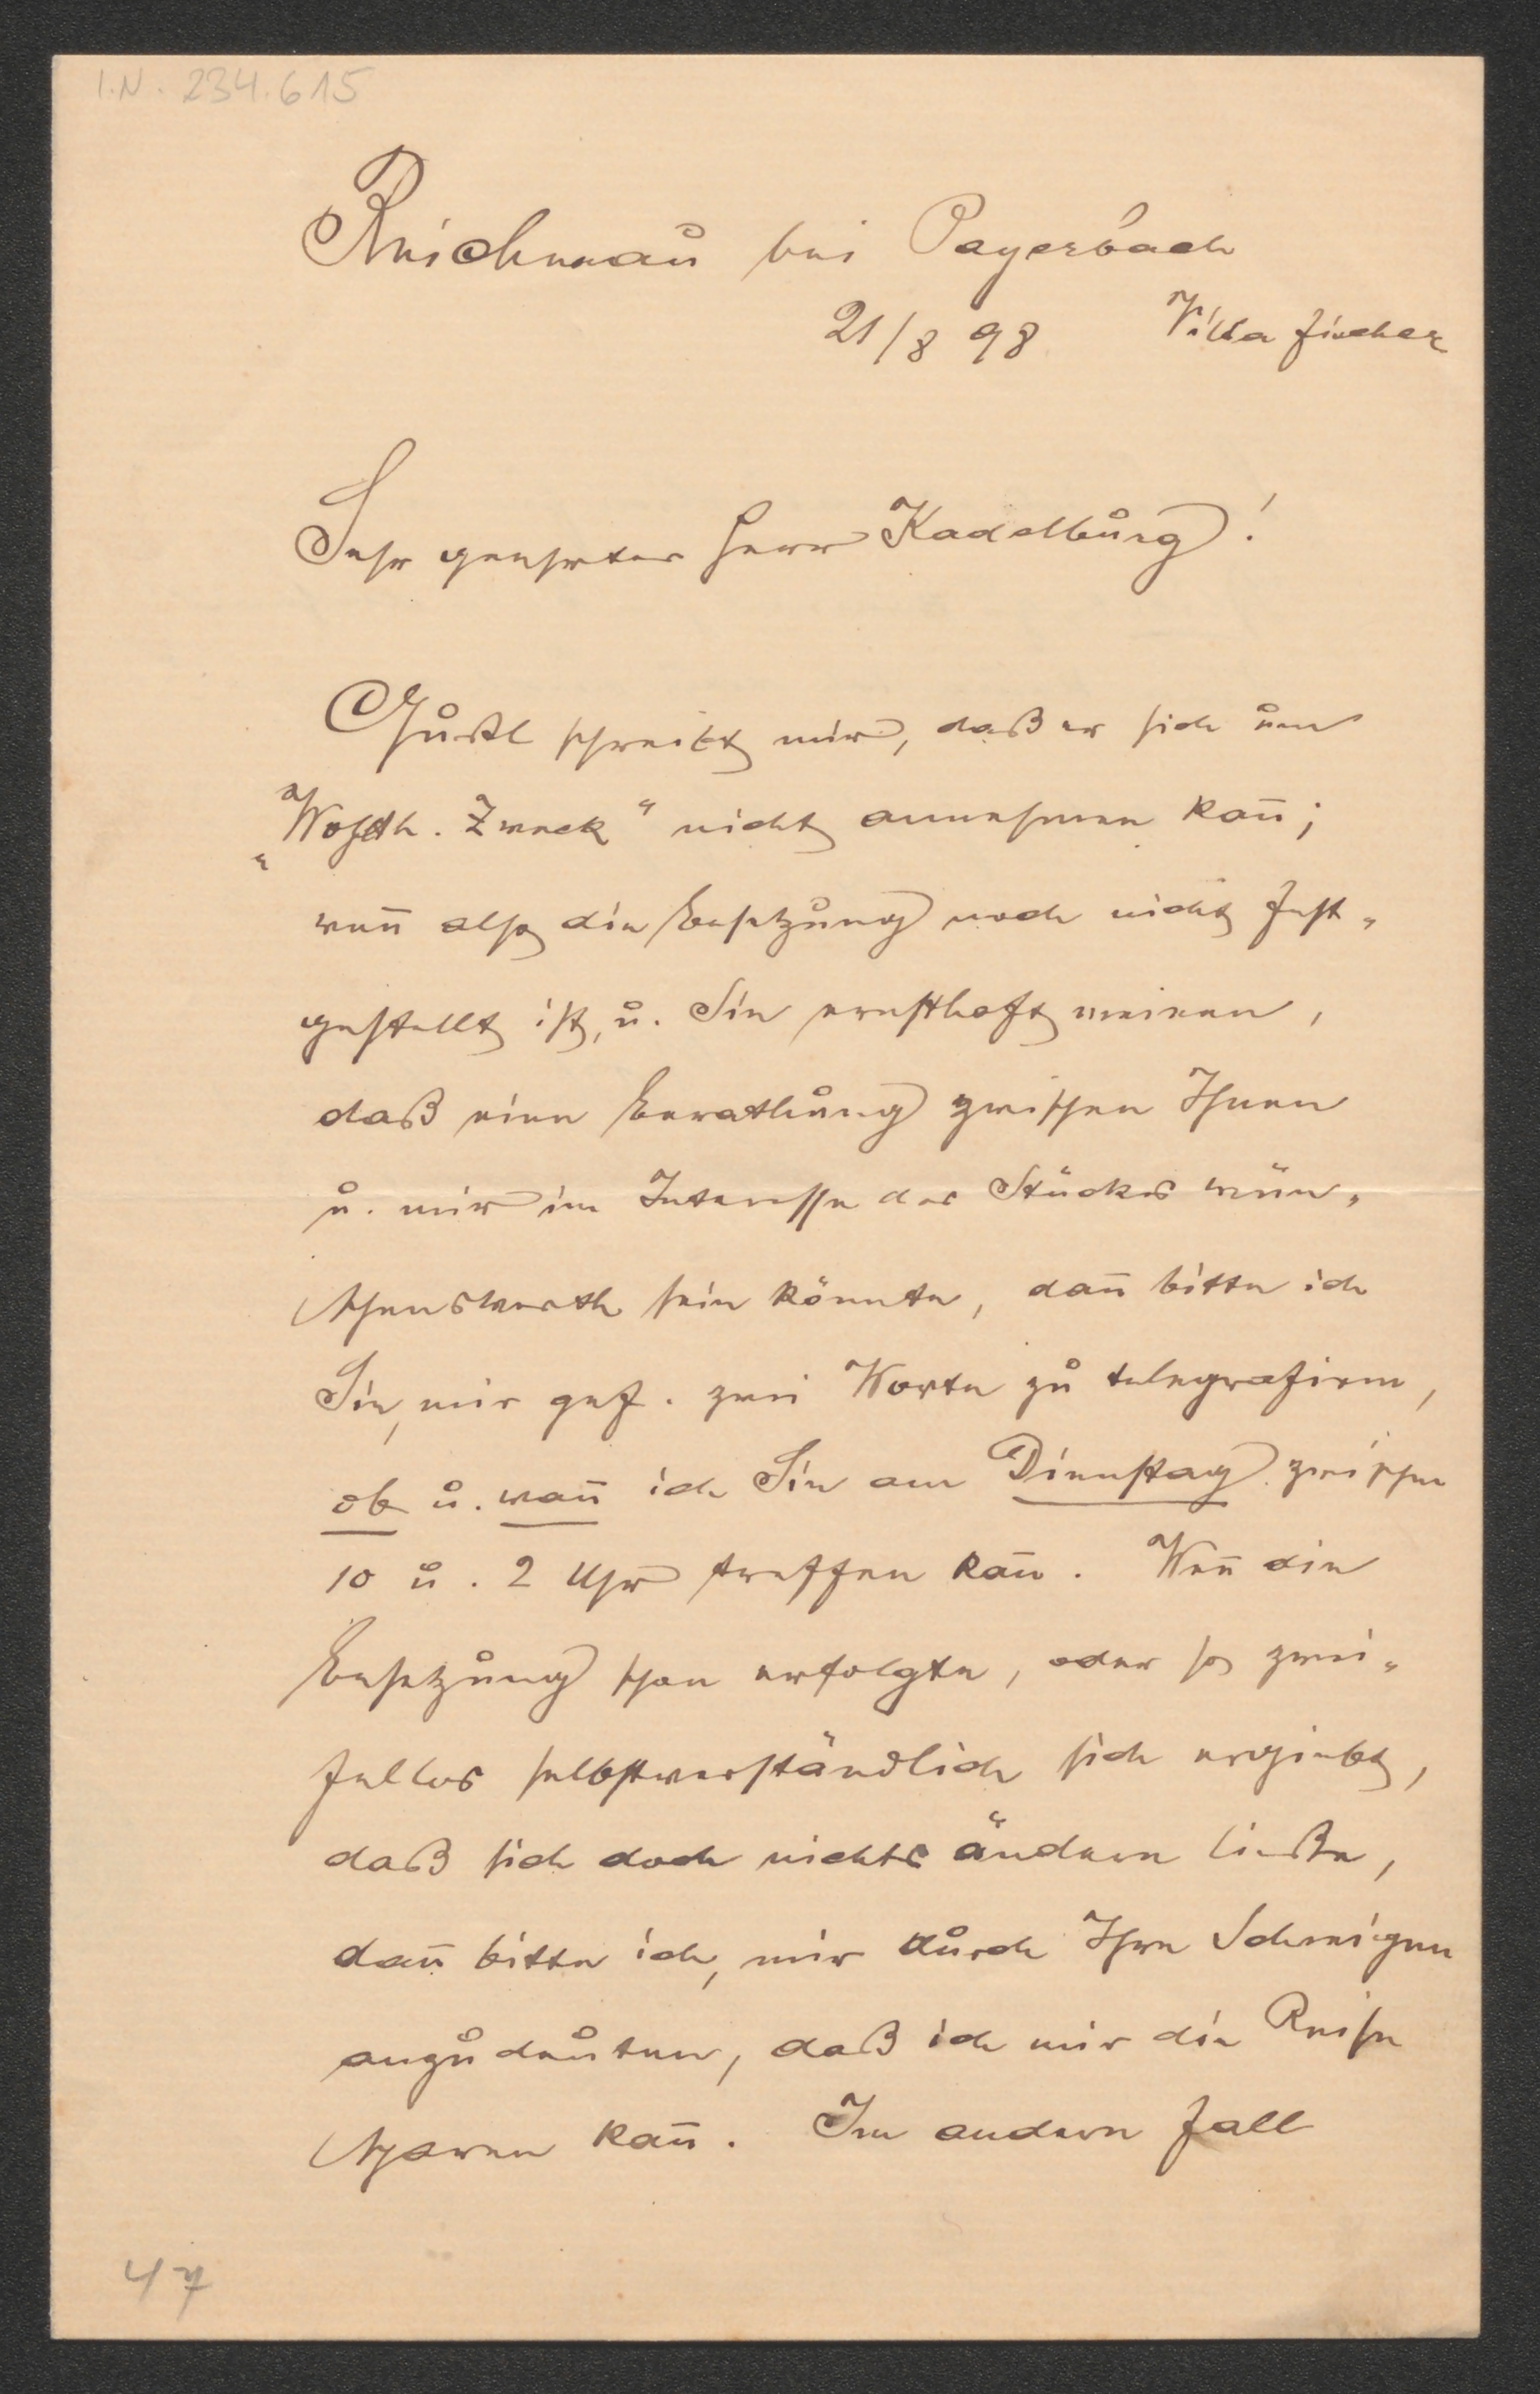 I.N. 234.615
Reichenau bei Payerbach
21/8 98 Villa Fischer
Sehr geehrter Herr Kadelburg!
Gustl schreibt mir, daß er sich um
„Wohlth. Zweck“ nicht annehmen kan̄;
wen̄ also die Besetzung noch nicht fest-
gestellt ist, u. Sie ernsthaft meinen,
daß eine Berathung zwischen Ihnen
u. mir im Interesse des Stückes wün-
schenswerth sein könnte, dan̄ bitte ich
Sie, mir gef. zwei Worte zu telegrafiren,
ob u. wan̄ ich Sie am Dienstag zwischen
10 u. 2 Uhr treffen kan̄. Wen̄ die
Besetzung schon erfolgte, oder so zwei-
fellos selbstverständlich sich ergiebt,
daß sich doch nichts ändern ließe,
dan̄ bitte ich, mir durch Ihre Schweigen
anzudeuten, daß ich mir die Reise
sparen kan̄. Im andern Fall
47